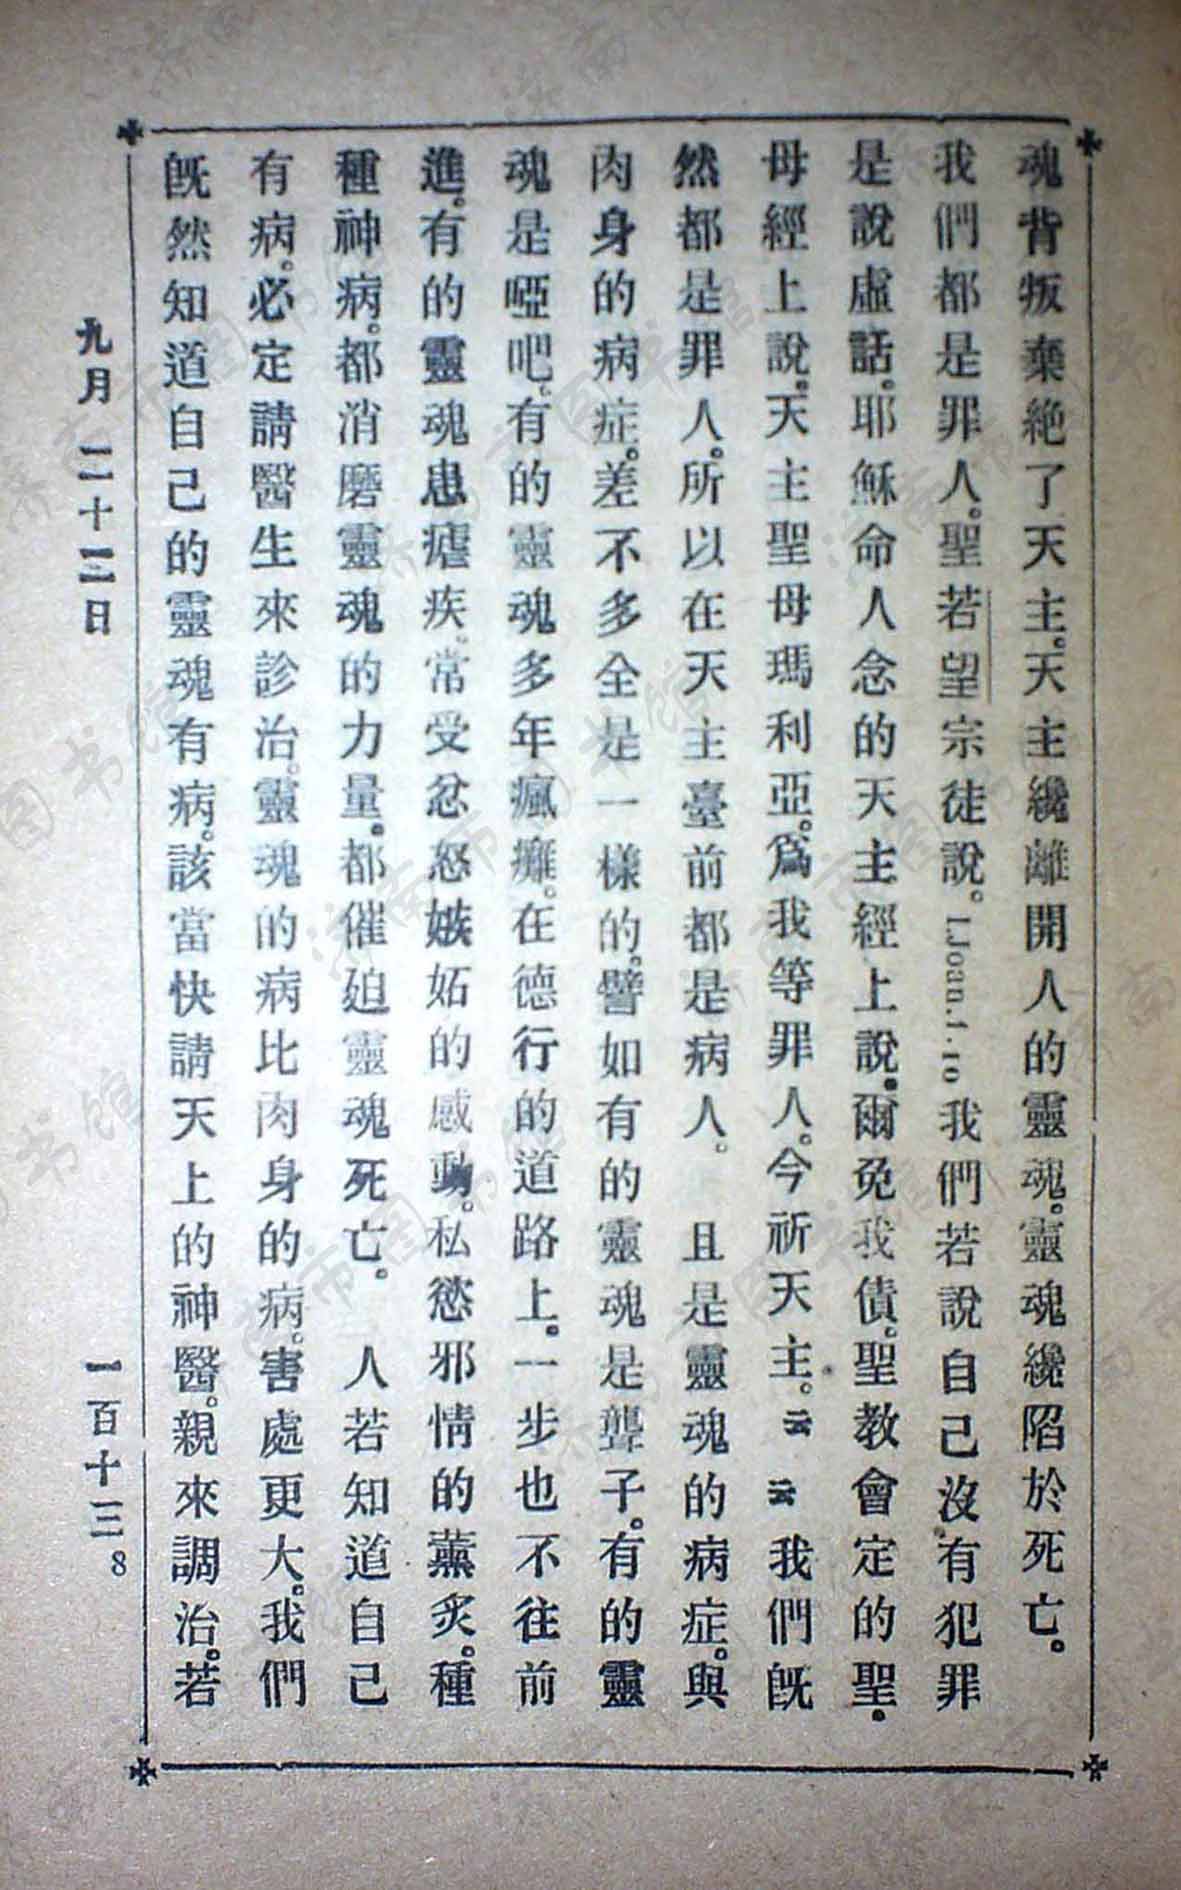 魂背叛棄絕了天主。天主纔離開人的靈魂。靈魂纔陷於死亡。
我們都是罪人。聖若望宗徒說。I.Joan.1.10我們若說自己沒有犯罪
是說虛話。耶穌命人念的天主經上說。爾免我債。聖教會定的聖。
母經上說。天主聖母瑪利亞。爲我等罪人。今祈天主。云云我們旣
然都是罪人。所以在天主臺前都是病人。且是靈魂的病症。與
肉身的病症。差不多全是一樣的。譬如有的靈魂是聾子。有的靈
魂是啞吧。有的靈魂多年瘋癱。在德行的道路上。一步也不往前
進。有的靈魂患瘧疾。常受忿怒嫉妬的感動。私慾邪情的薰炙。種
種神病。都消磨靈魂的力量。都催廹靈魂死亡。人若知道自己
有病。必定請醫生來診治。靈魂的病比肉身的病。害處更大。我們
旣然知道自己的靈魂有病。該當快請天上的神醫。親來調治。若
九月二十二日 一百十三
8
济南市图书馆